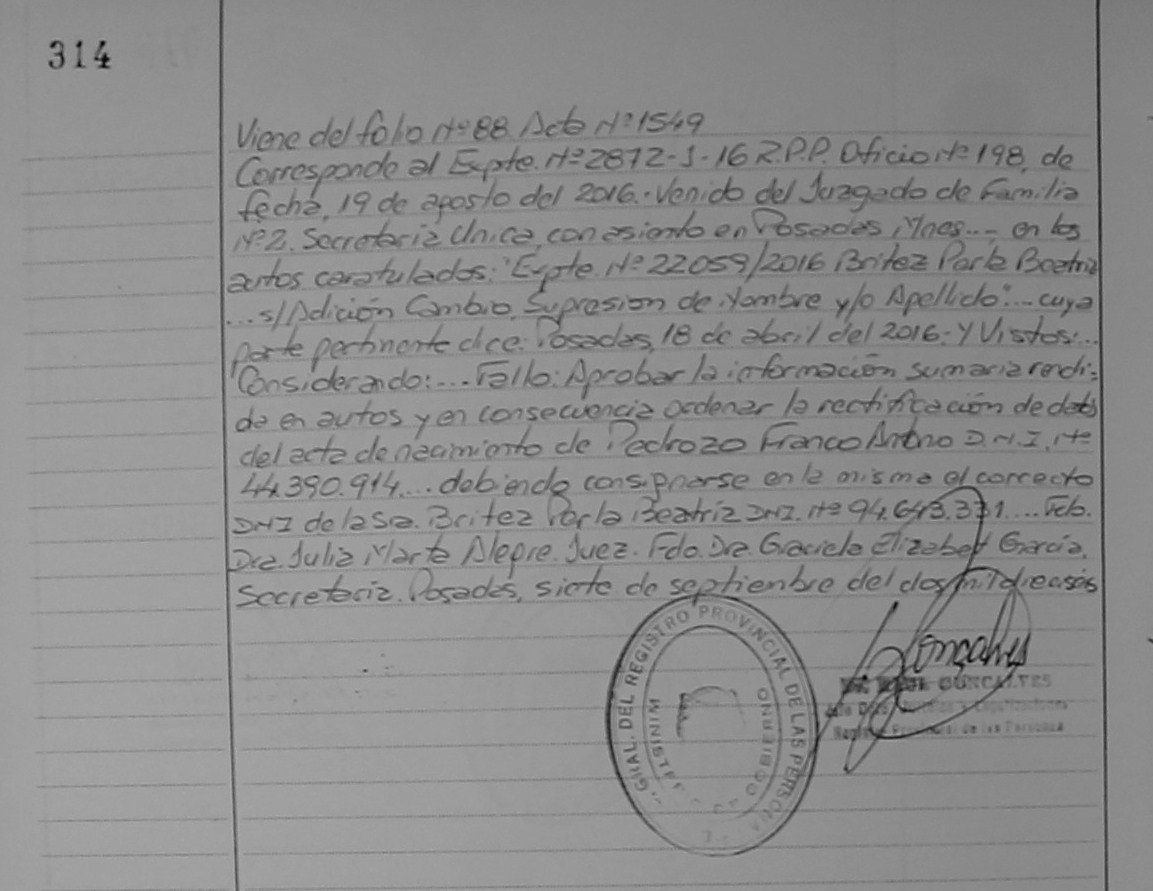 314
Viene del folio Nº 88. Acta Nº 1549
Corresponde al Expte. Nº 2872-J-16 R.P.P. Oficio Nº 198, de
fecha, 19 de agosto del 2016.- Venido del Juzgado de Familia
Nº 2. Secretaria Unica, con asiento en Posadas, Mnes.... en los
autos caratulados: "Expte. Nº 22059/2016 Britez Parla Beatriz
... s/ Adición Cambio, Supresion de Nombre y/o Apellido"... cuya
parte pertinente dice: Posadas, 18 de abril del 2016.- Y Vistos:...
Considerando:... Fallo: Aprobar la información sumaria rendi=
da en autos y en consecuencia ordenar la rectificación de datos
del acta de nacimiento de Pedrozo Franco Antho D.N.I. Nº
44.390.914.... debiendo consignarse en la misma el correcto
DNI de la Sra. Britez Parla Beatriz DNI. Nº 94.643.331.... Fdo.
Dra. Julia Marta Alegre. Juez. Fdo. Dra. Graciela Elizabet García.
Secretaria. Posadas, siete de septiembre del dos mil dieciséis
Goncalves
GONCALVES
Registro Provincial de las Personas
GRAL. DEL REGISTRO PROVINCIAL DE LAS PERSONA
MINISTE
GOBIERNO